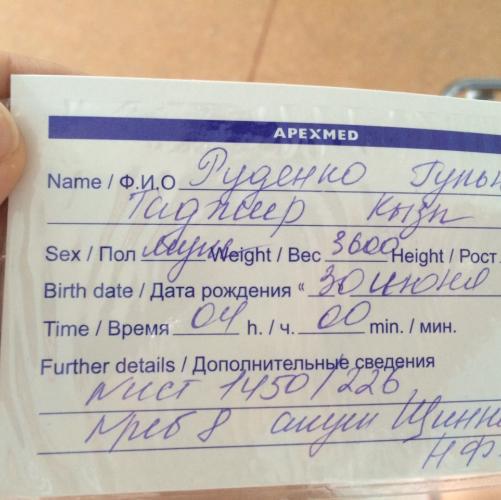 APEXMED
Name / Ф.И.О Руденко
Таджир кызы
Sex / Пол муж Weight / Вес 3600 Height / Рост
Birth date / Дата рождения “ 30 июня
Time / Время 04 h. / ч. 00 min. / мин.
Further details / Дополнительные сведения
№ист 1450/226
№реб 8